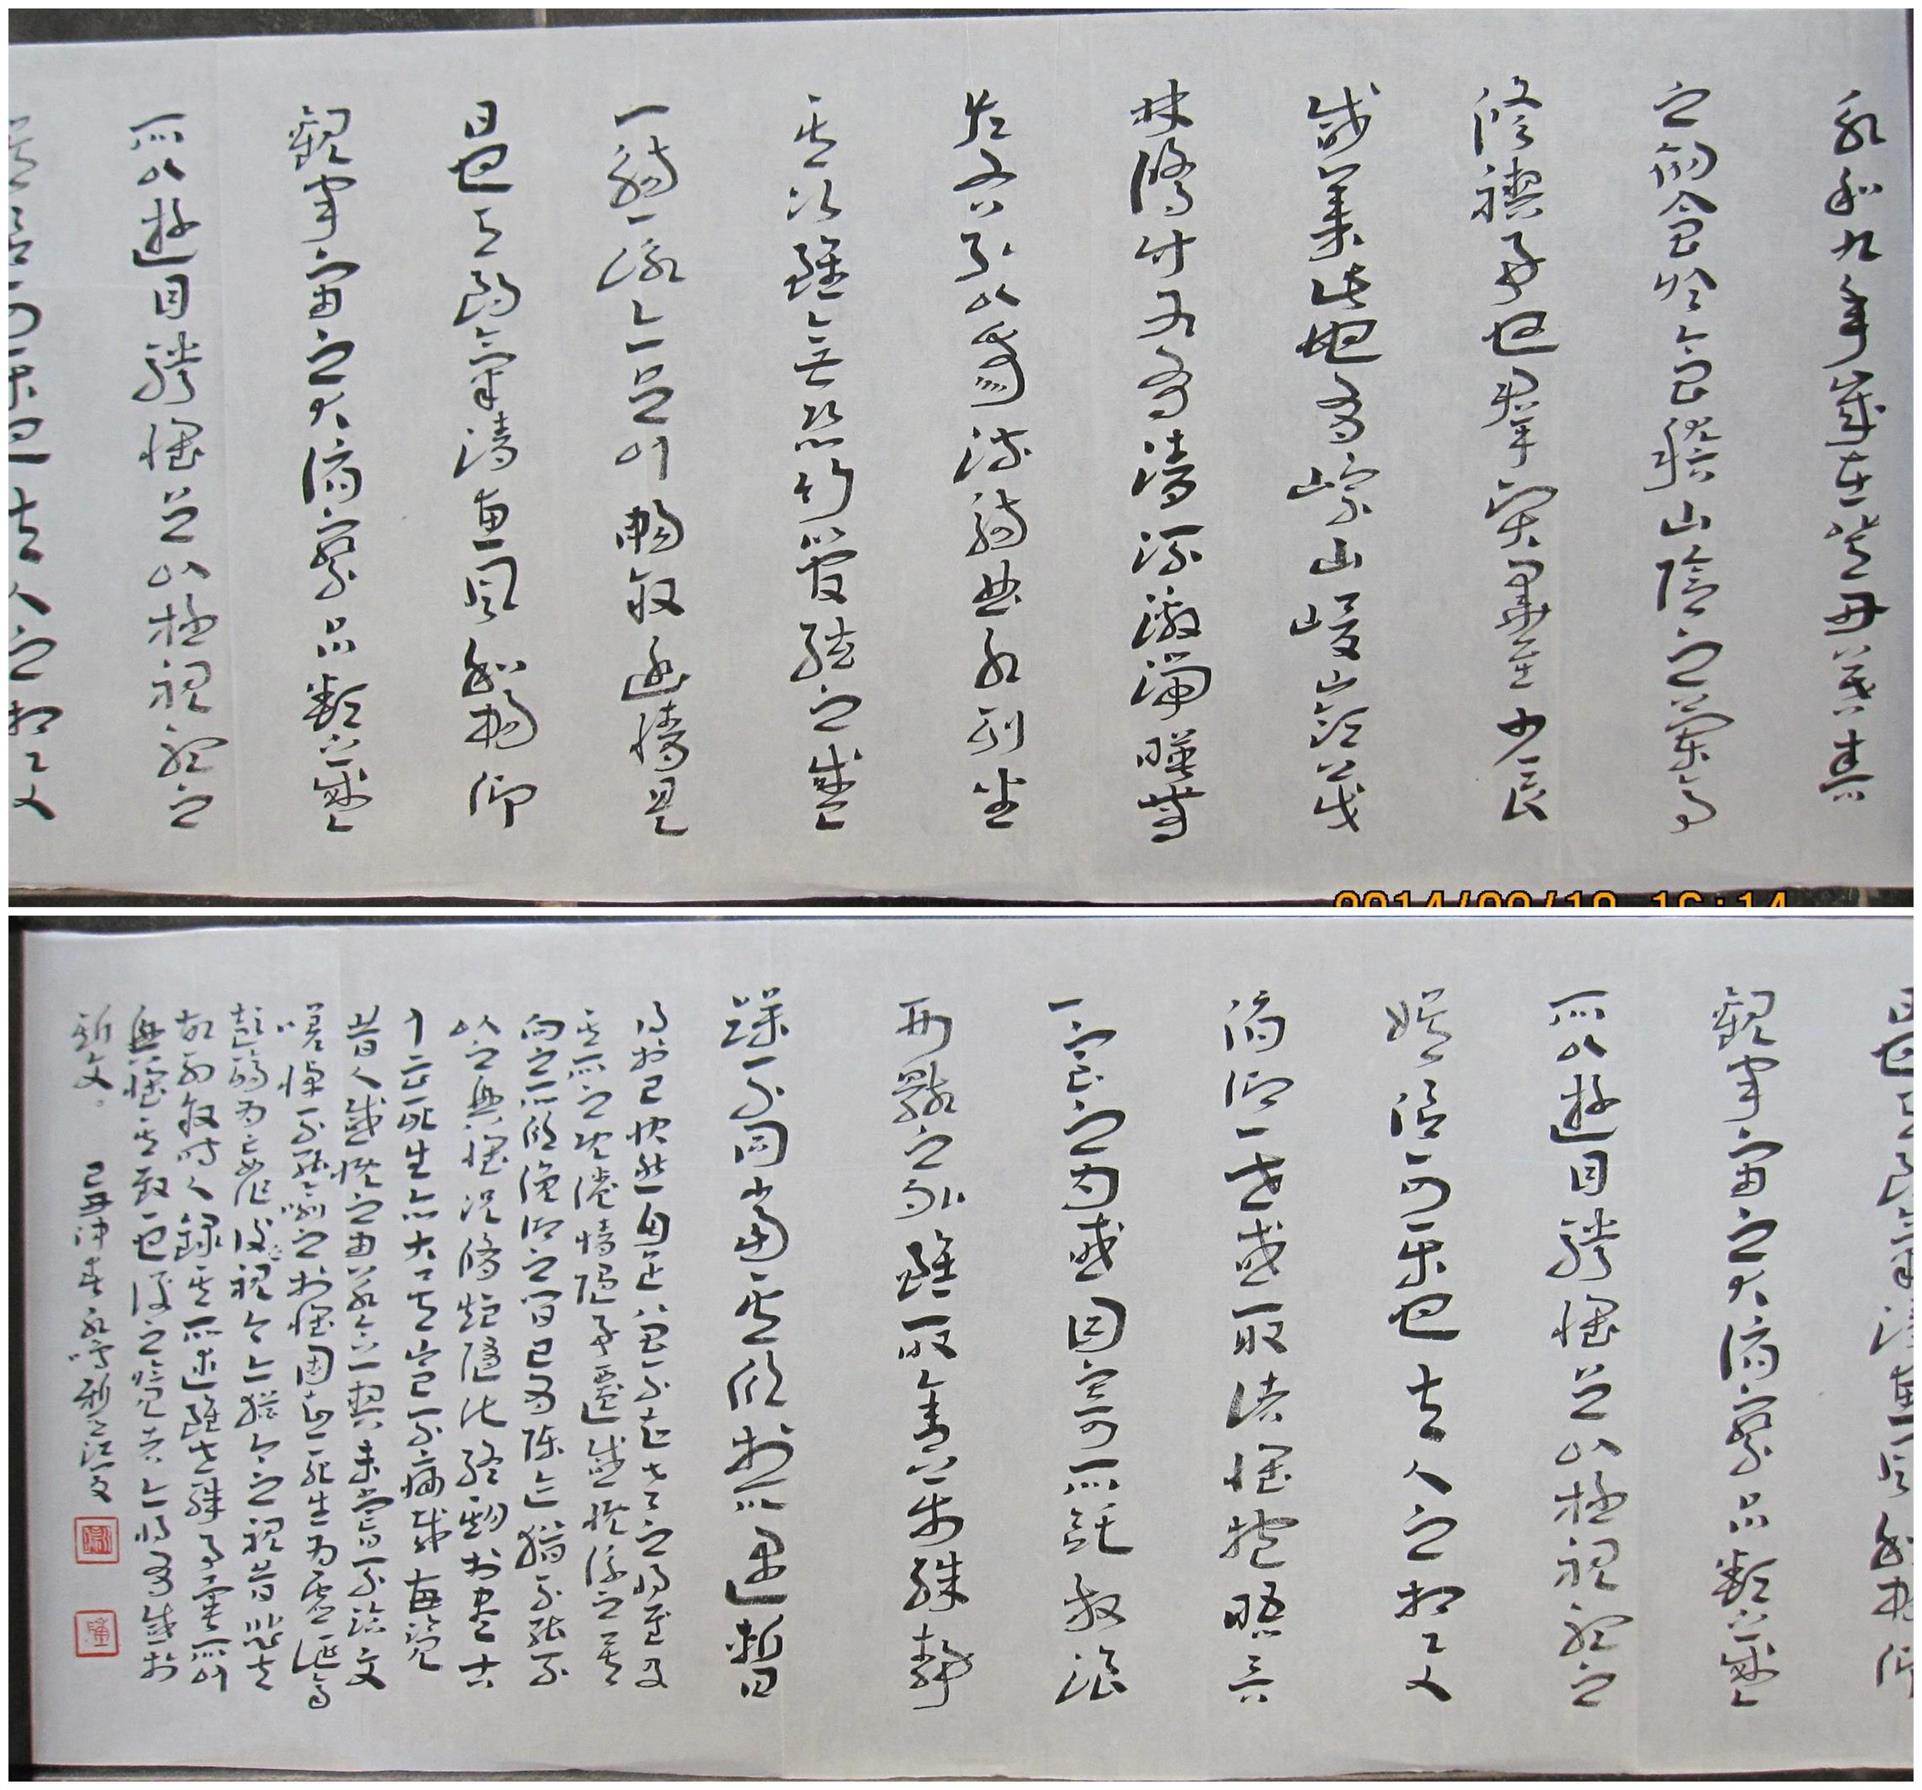 永和九年歲在癸丑暮春
之初會於會稽山陰之蘭亭
修禊事也羣賢畢至少長
咸集此地有崇山峻嶺茂
林修竹又有清流激湍暎帶
左右引以為流觴曲水列坐
其次雖無絲竹管絃之盛
一觴一詠亦足以暢敘幽情是
日也天朗氣清惠風和暢仰
觀宇宙之大俯察品類之盛
所以遊目騁懷足以極視聽之
娛信可樂也夫人之相與
2014/
日也天朗氣清惠風和暢仰
觀宇宙之大俯察品類之盛
所以遊目騁懷足以極視聽之
娛信可樂也夫人之相與
俯仰一世或取諸懷抱晤言
一室之內或因寄所託放浪
形骸之外雖取舍萬殊靜
躁不同當其欣於所遇暫
得於己快然自足曾不知老之將至及
其所之既倦情隨事遷感慨係之矣
向之所欣俛仰之間已為陳跡猶不能不
以之興懷況修短隨化終期於盡古
人云死生亦大矣豈不痛哉每覽
昔人感慨之由若合一契未嘗不臨文
嗟悼不能喻之於懷固知死生為虛誕齊
彭殤為妄作後之視今亦猶今之視昔悲夫
故列敘時人錄其所述雖世殊事異所以
興懷其致一也後之覽者亦將有感於
斯文。 己丑仲春